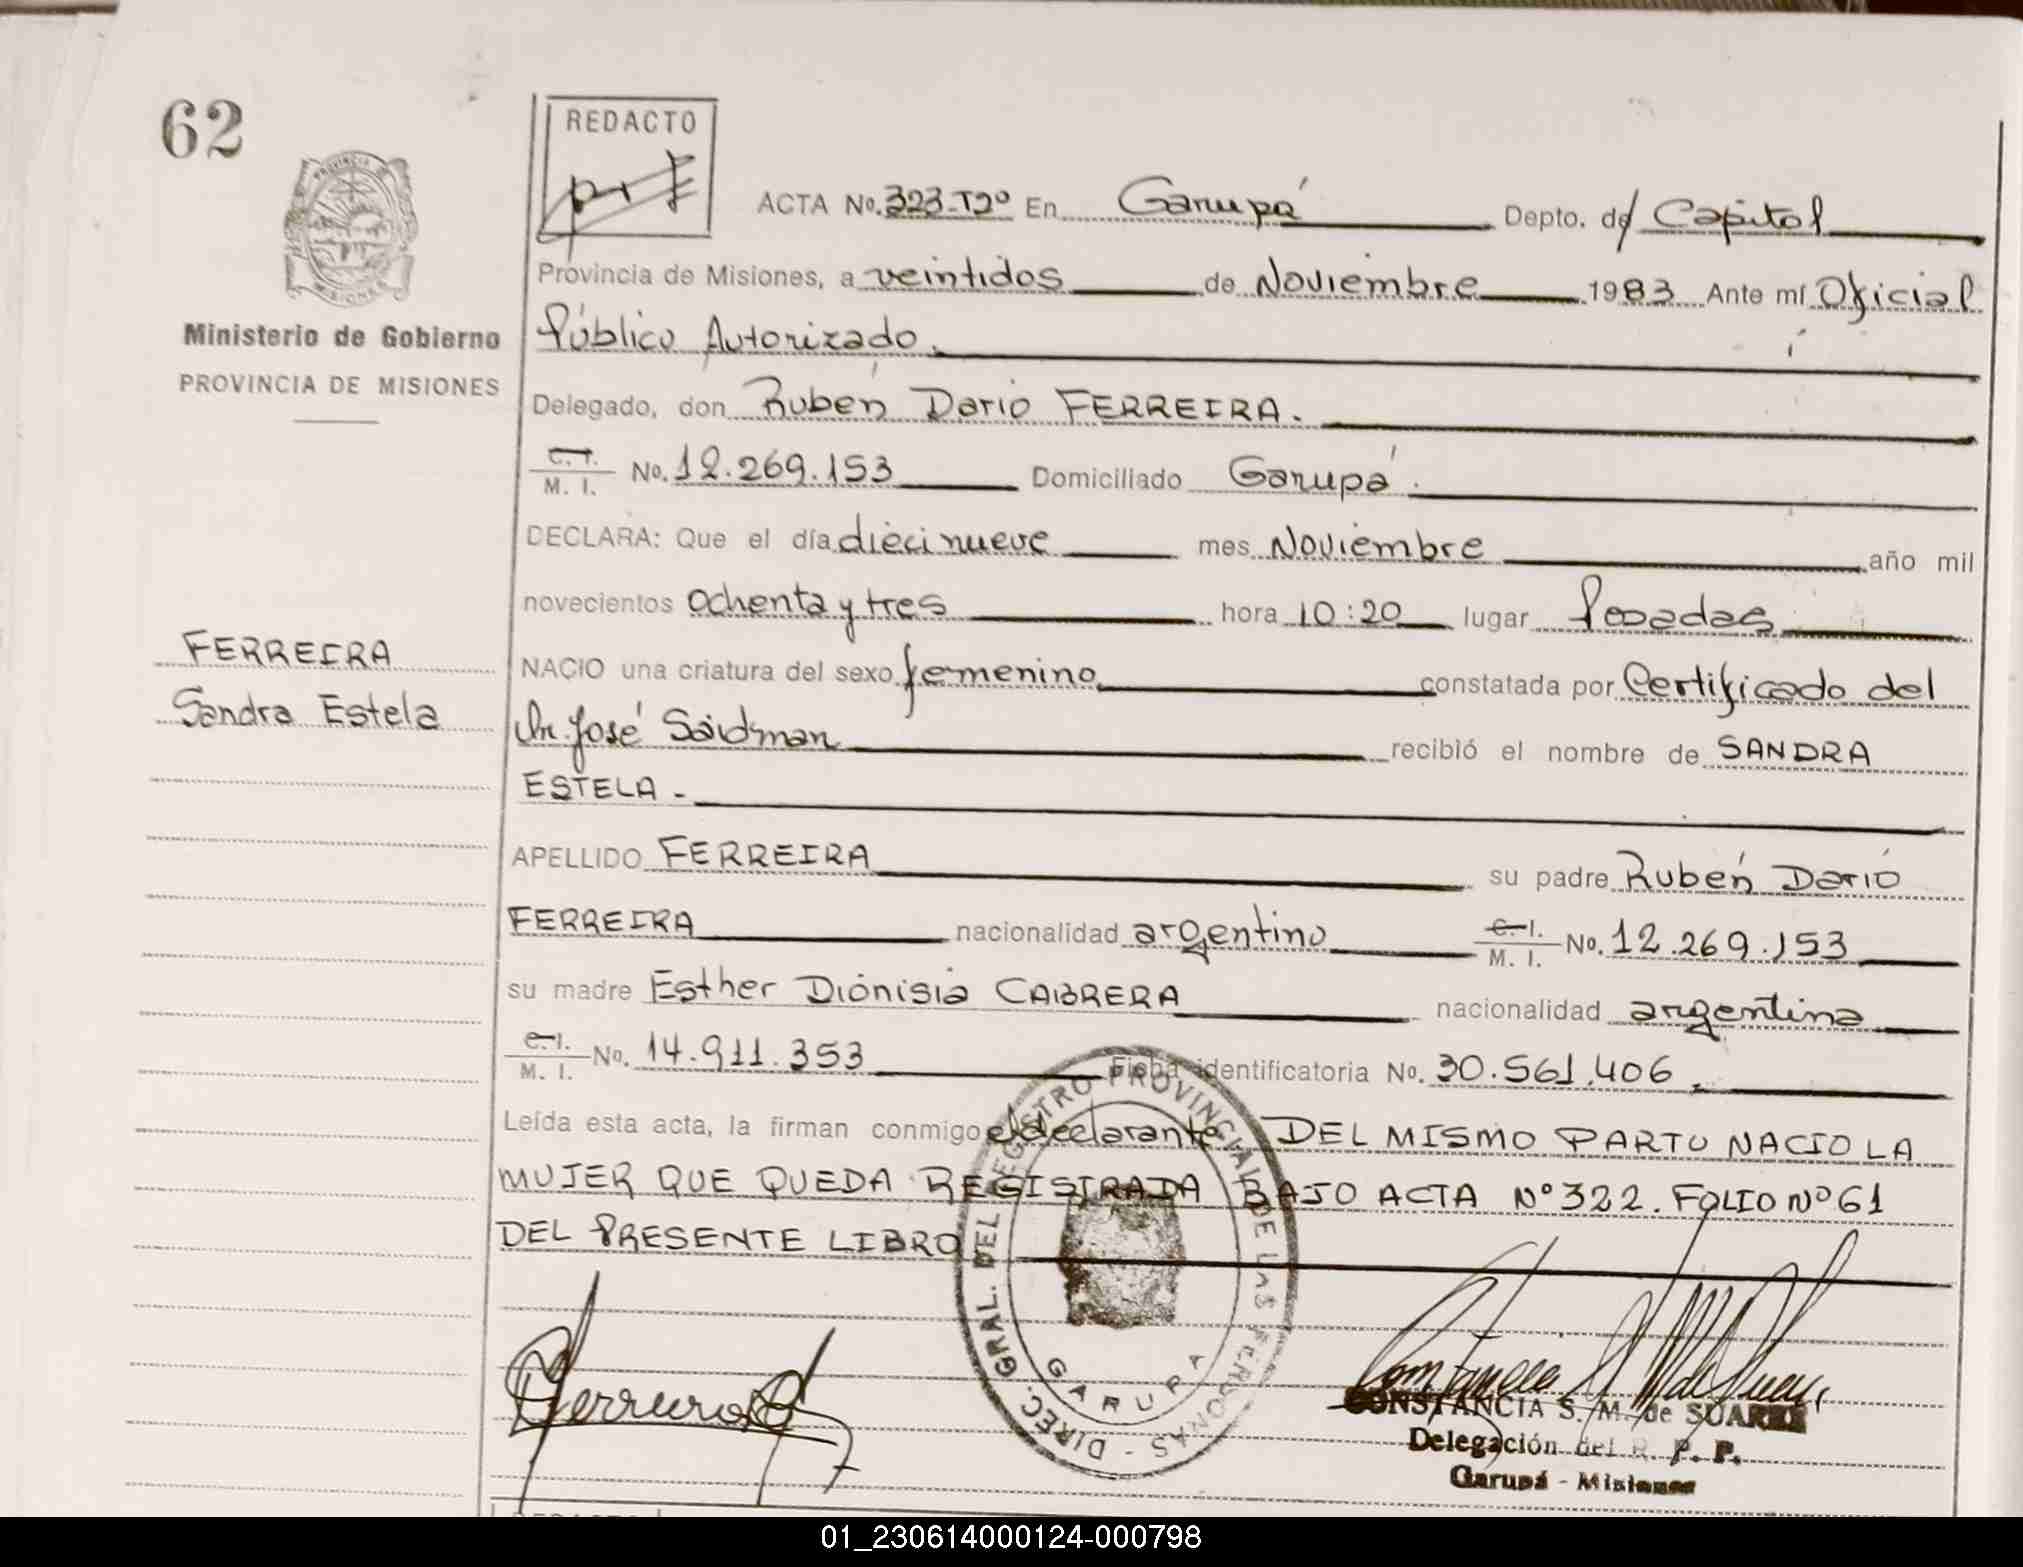 62
REDACTO
PROVINCIA DE
MISIONES
Ministerio de Gobierno
PROVINCIA DE MISIONES
ACTA No. 323-T2º En Garupá Depto. de Capital
Provincia de Misiones, a veintidos de Noviembre 1983 Ante mí Oficial
Público Autorizado.
Delegado, don Rubén Darío FERREIRA.
C. I.
M. I. No. 12.269.153 Domiciliado Garupá.
DECLARA: Que el día diecinueve mes Noviembre año mil
novecientos ochenta y tres hora 10:20 lugar Posadas
FERREIRA
Sandra Estela
NACIO una criatura del sexo femenino constatada por Certificado del
Dr. José Saidman recibió el nombre de SANDRA
ESTELA -
APELLIDO FERREIRA su padre Rubén Darío
FERREIRA nacionalidad argentino C. I. M. I. No. 12.269.153
su madre Esther Dionisia CABRERA nacionalidad argentina
C. I. M. I. No. 14.911.353 Ficha identificatoria No. 30.561.406.
Leída esta acta, la firman conmigo el declarante DEL MISMO PARTO NACIO LA
MUJER QUE QUEDA REGISTRADA BAJO ACTA Nº 322. FOLIO Nº 61
DEL PRESENTE LIBRO
DIREC. GRAL. DEL REGISTRO PROVINCIAL DE LAS PERSONAS -
GARUPA
CONSTANCIA S. M. de SUAREZ
Delegación del R. P. P.
Garupá - Misiones
01_230614000124-000798